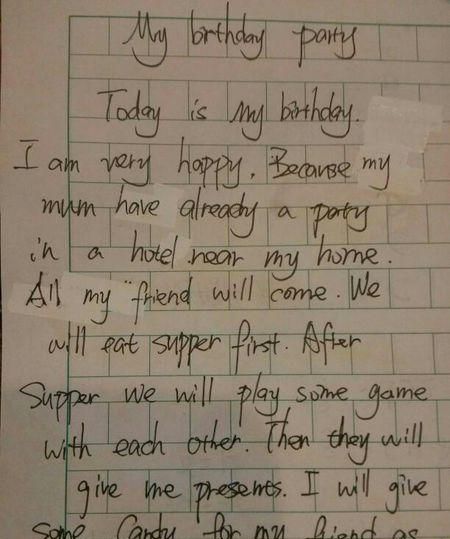 My birthday party
Today is my birthday.
I am very happy. Because my
mum have already a party
in a hotel near my home.
All my friend will come. We
will eat supper first. After
Supper we will play some game
with each other. Then they will
give me presents. I will give
some candy for my friend as